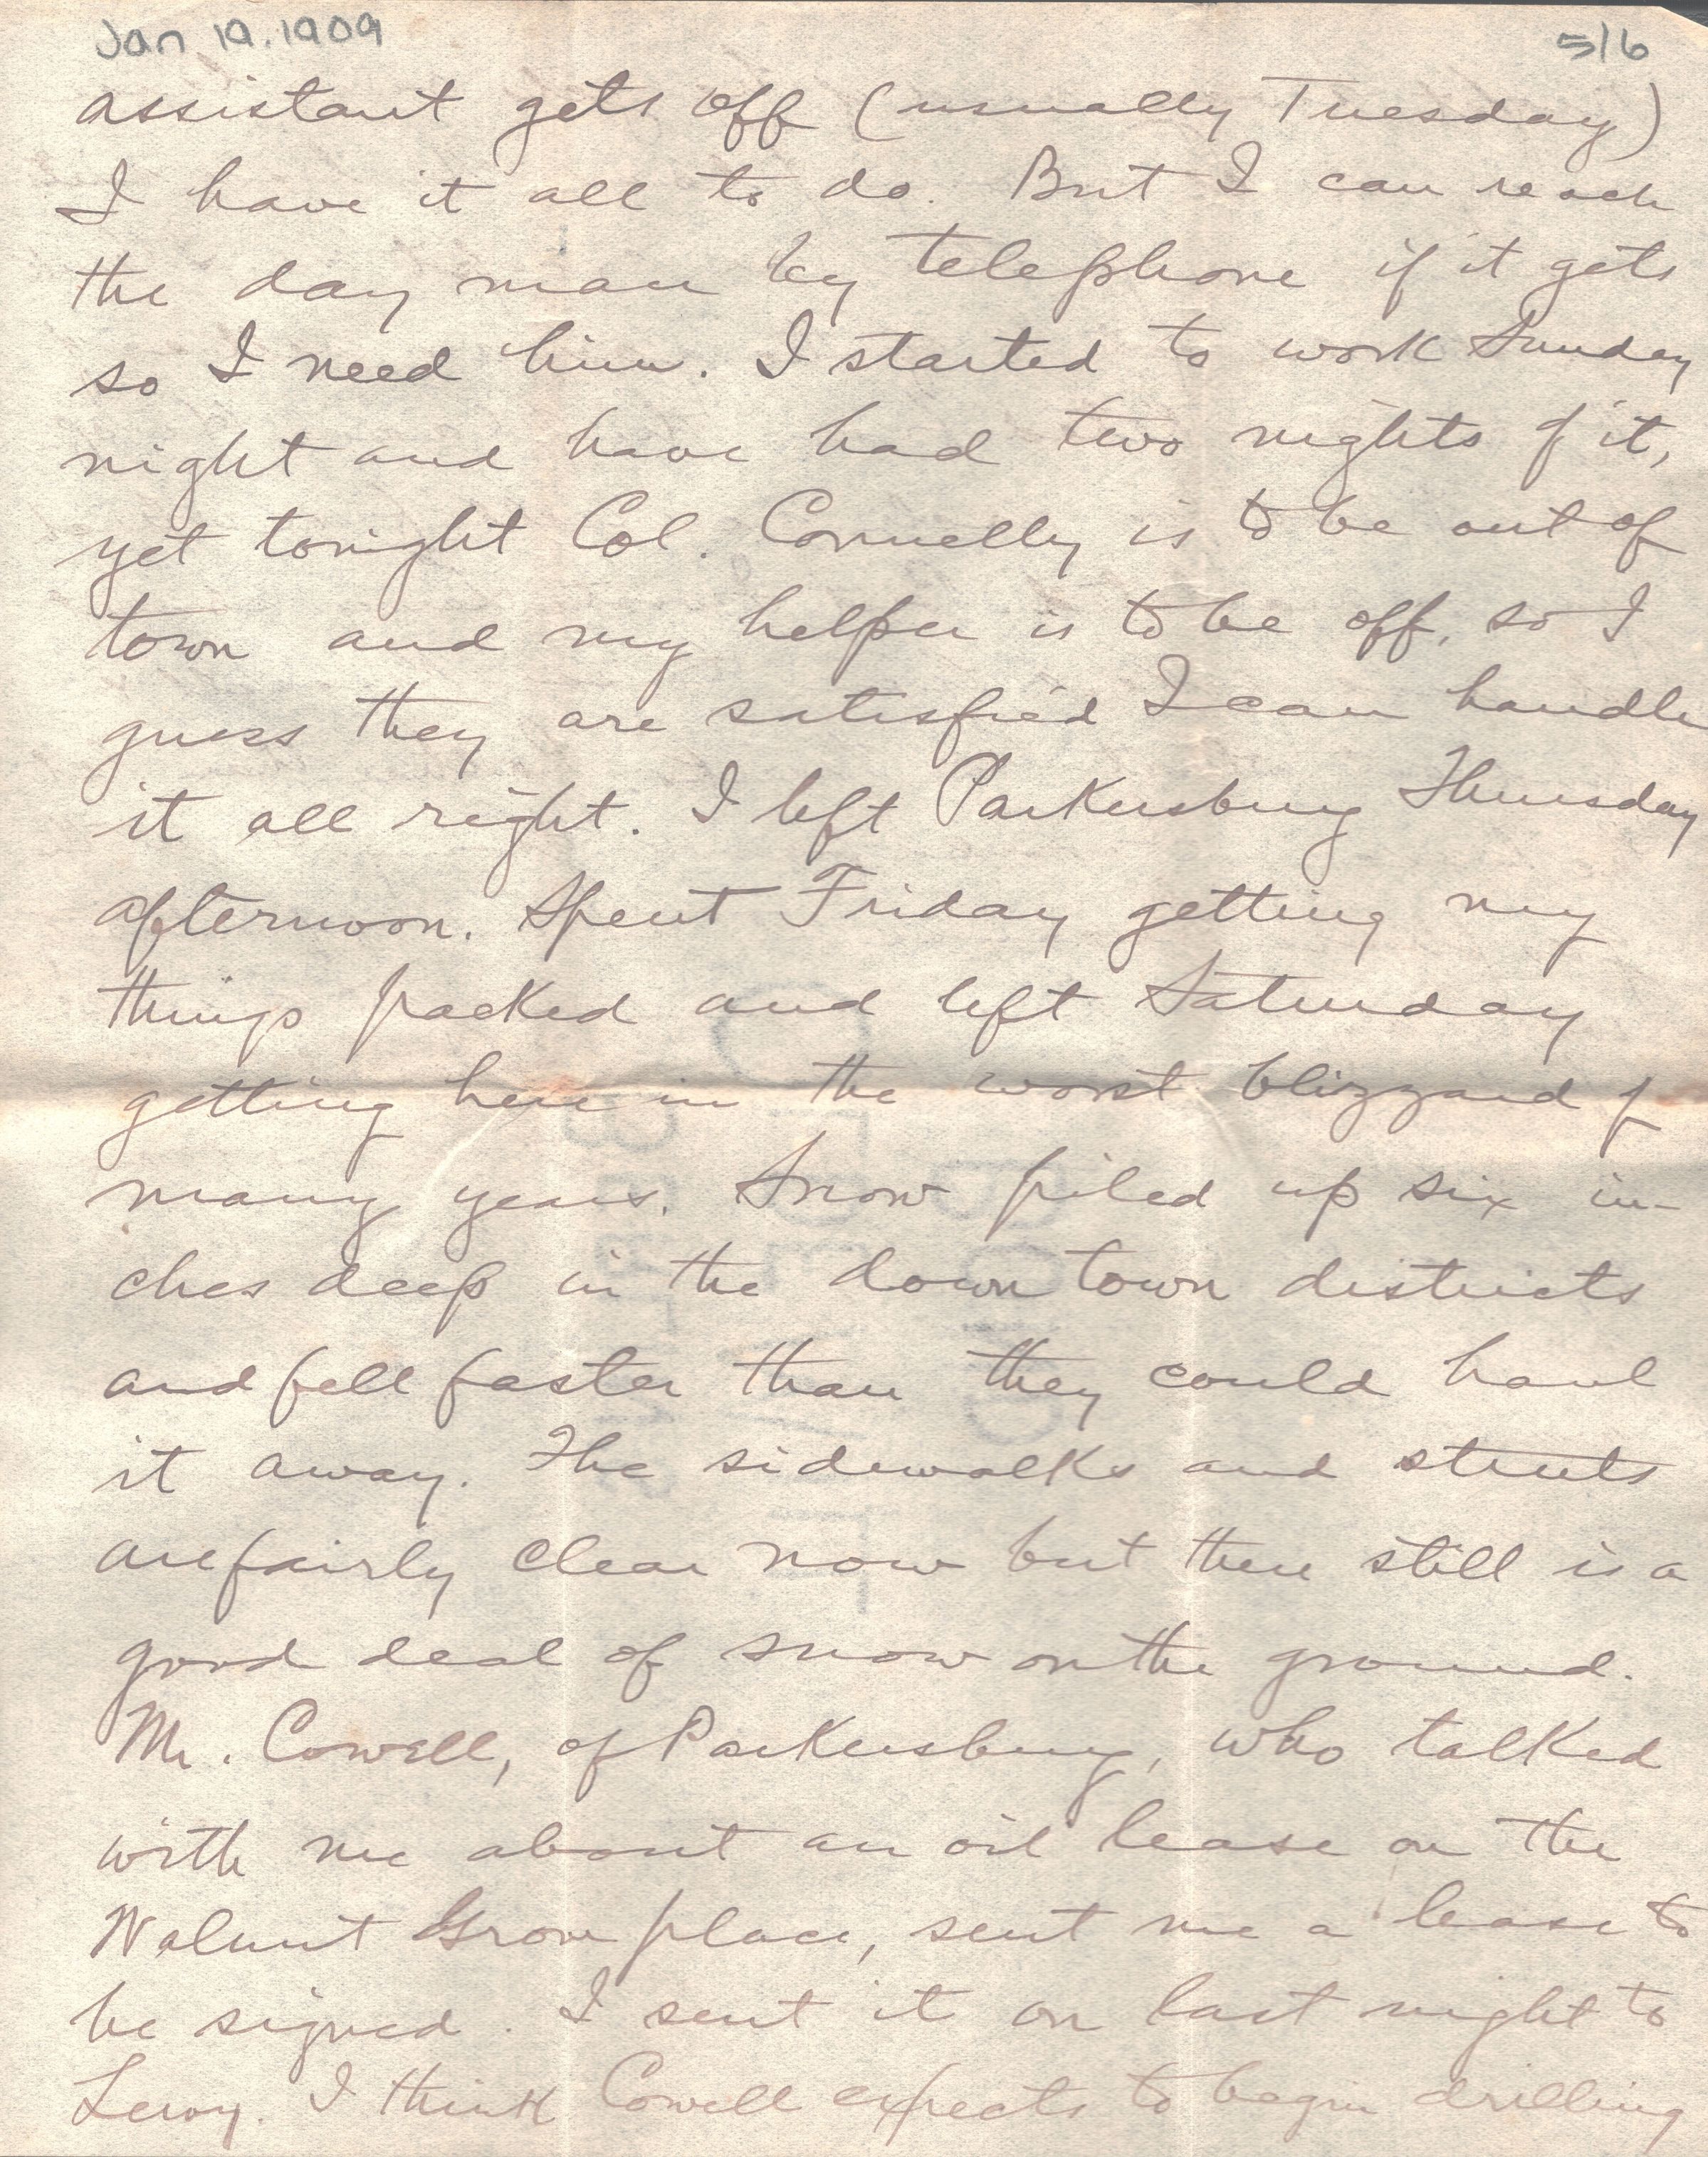 Jan 19.1909 5/6
assistant gets off (usually Tuesday)
I have it all to do. But I can reach
the day man by telephone if it gets
so I need him. I started to work Sunday
night and have had two nights of it,
yet tonight Col. Connelly is to be out of
town and my helper is to be off, so I
guess they are satisfied I can handle
it all right. I left Parkersburg Thursday
afternoon. Spent Friday getting my
things packed and left Saturday
getting here in the worst blizzard of
many years. Snow piled up six in-
ches deep in the down town districts
and fell faster than they could haul
it away. The sidewalks and streets
are fairly clear now but there still is a
good deal of snow on the ground.
Mr. Cowell, of Parkersburg, who talked
with me about an oil lease on the
Walnut Grove place, sent me a lease to
be signed. I sent it on last night to
Leroy. I think Cowell expects to begin drilling